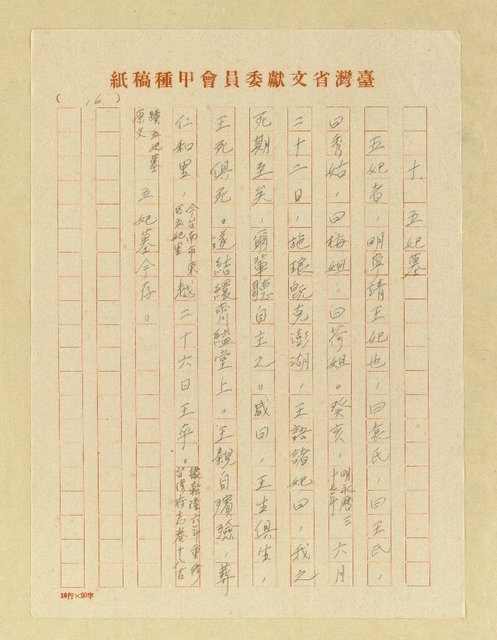 紙稿種甲會員委獻文省灣臺
(16)
十、五妃墓
五妃者，明寧靖王妃也，曰袁氏，曰王氏，
曰秀姑，曰梅姐，曰荷姐。癸亥，明永曆三十七年六月
二十二日，施琅既克澎湖，王語諸妃曰，我之
死期至矣，爾輩聽自主之。咸曰，王生俱生，
王死俱死。遂結繯齊縊堂上。王親自殯殮，葬
仁和里，今台南市東區五妃里越二十六日王卒。據乾隆六年重修台灣府志卷十八古
蹟五妃墓原文五妃墓今存。
10行×20字